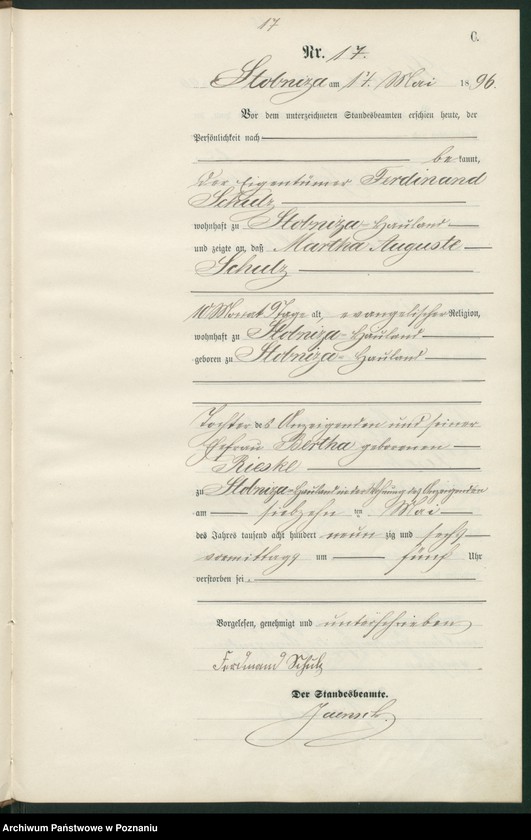 17
C.
Nr. 17.
Stobniza am 17. Mai 1896.
Vor dem unterzeichneten Standesbeamten erschien heute, der
Persönlichkeit nach
bekannt,
der Eigentümer Ferdinand
Schulz
wohnhaft zu Stobniza-Hauland
und zeigte an, daß Martha Auguste
Schulz
10 Monat 9 Tage alt, evangelischer Religion,
wohnhaft zu Stobniza-Hauland
geboren zu Stobniza-Hauland
Tochter des Anzeigenden und seiner
Ehefrau Bertha geborenen
Rieske
zu Stobniza-Hauland in der Wohnung des Anzeigenden
am siebzehn ten Mai
des Jahres tausend acht hundert neun zig und sechs
vormittags um fünf Uhr
verstorben sei.
Vorgelesen, genehmigt und unterschrieben
Ferdinand Schulz
Der Standesbeamte.
Jaensch.
Archiwum Państwowe w Poznaniu